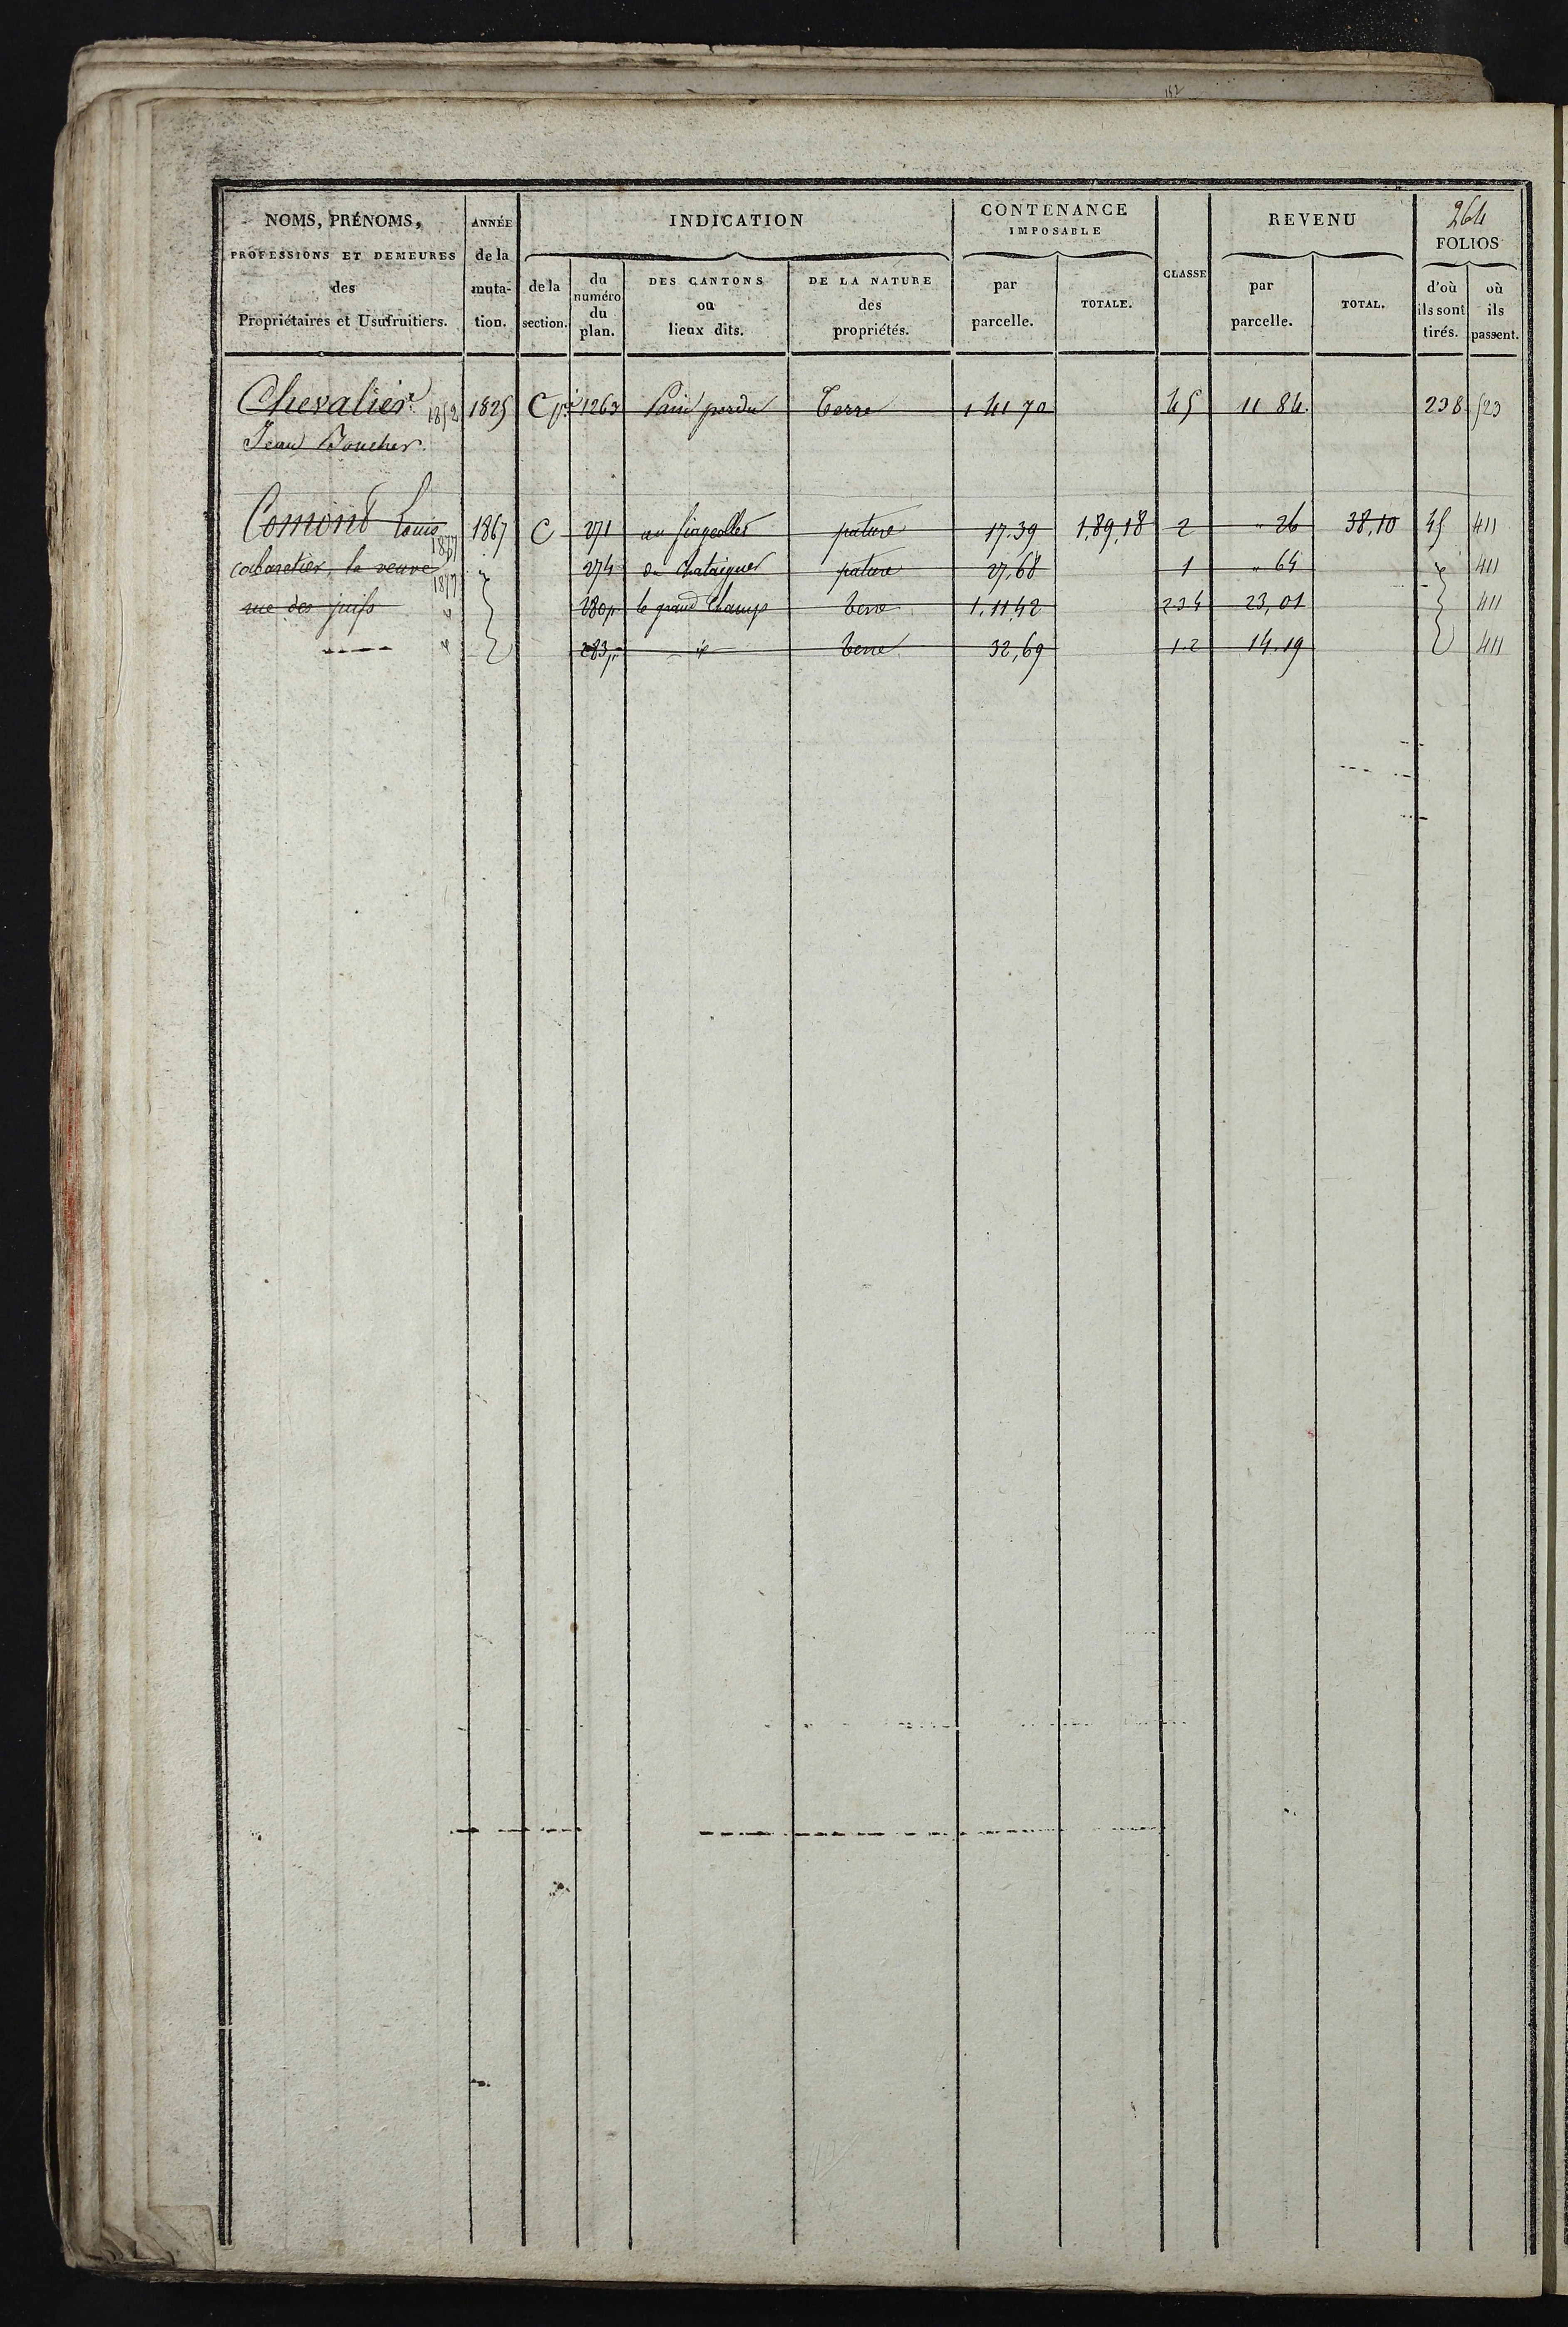 152
NOMS, PRÉNOMS, PROFESSIONS ET DEMEURES des Propriétaires et Usufruitiers.
ANNÉE de la muta- tion.
INDICATION
de la section.
du numéro du plan.
DES CANTONS ou lieux dits.
DE LA NATURE des propriétés.
CONTENANCE IMPOSABLE
par parcelle.
TOTALE.
CLASSE
REVENU
par parcelle.
TOTAL.
264
FOLIOS
d'où ils sont tirés.
où ils passent.
Chevalier 1852 1825 C 1263 Pain perdu Terre 1 41 70 45 11 84 238 523
Jean Boucher
Comont Louis 1867 C 271 pature 17.39 1,89,18 2 " 26 38,10 45 411
1877
cabaretier, la veuve 274 pature 27,68 1 " 64 411
1877
rue des juifs 280p le grand Champ terre 1.11,42 234 23,01 411
283p terre 32,69 1.2 14.19 411